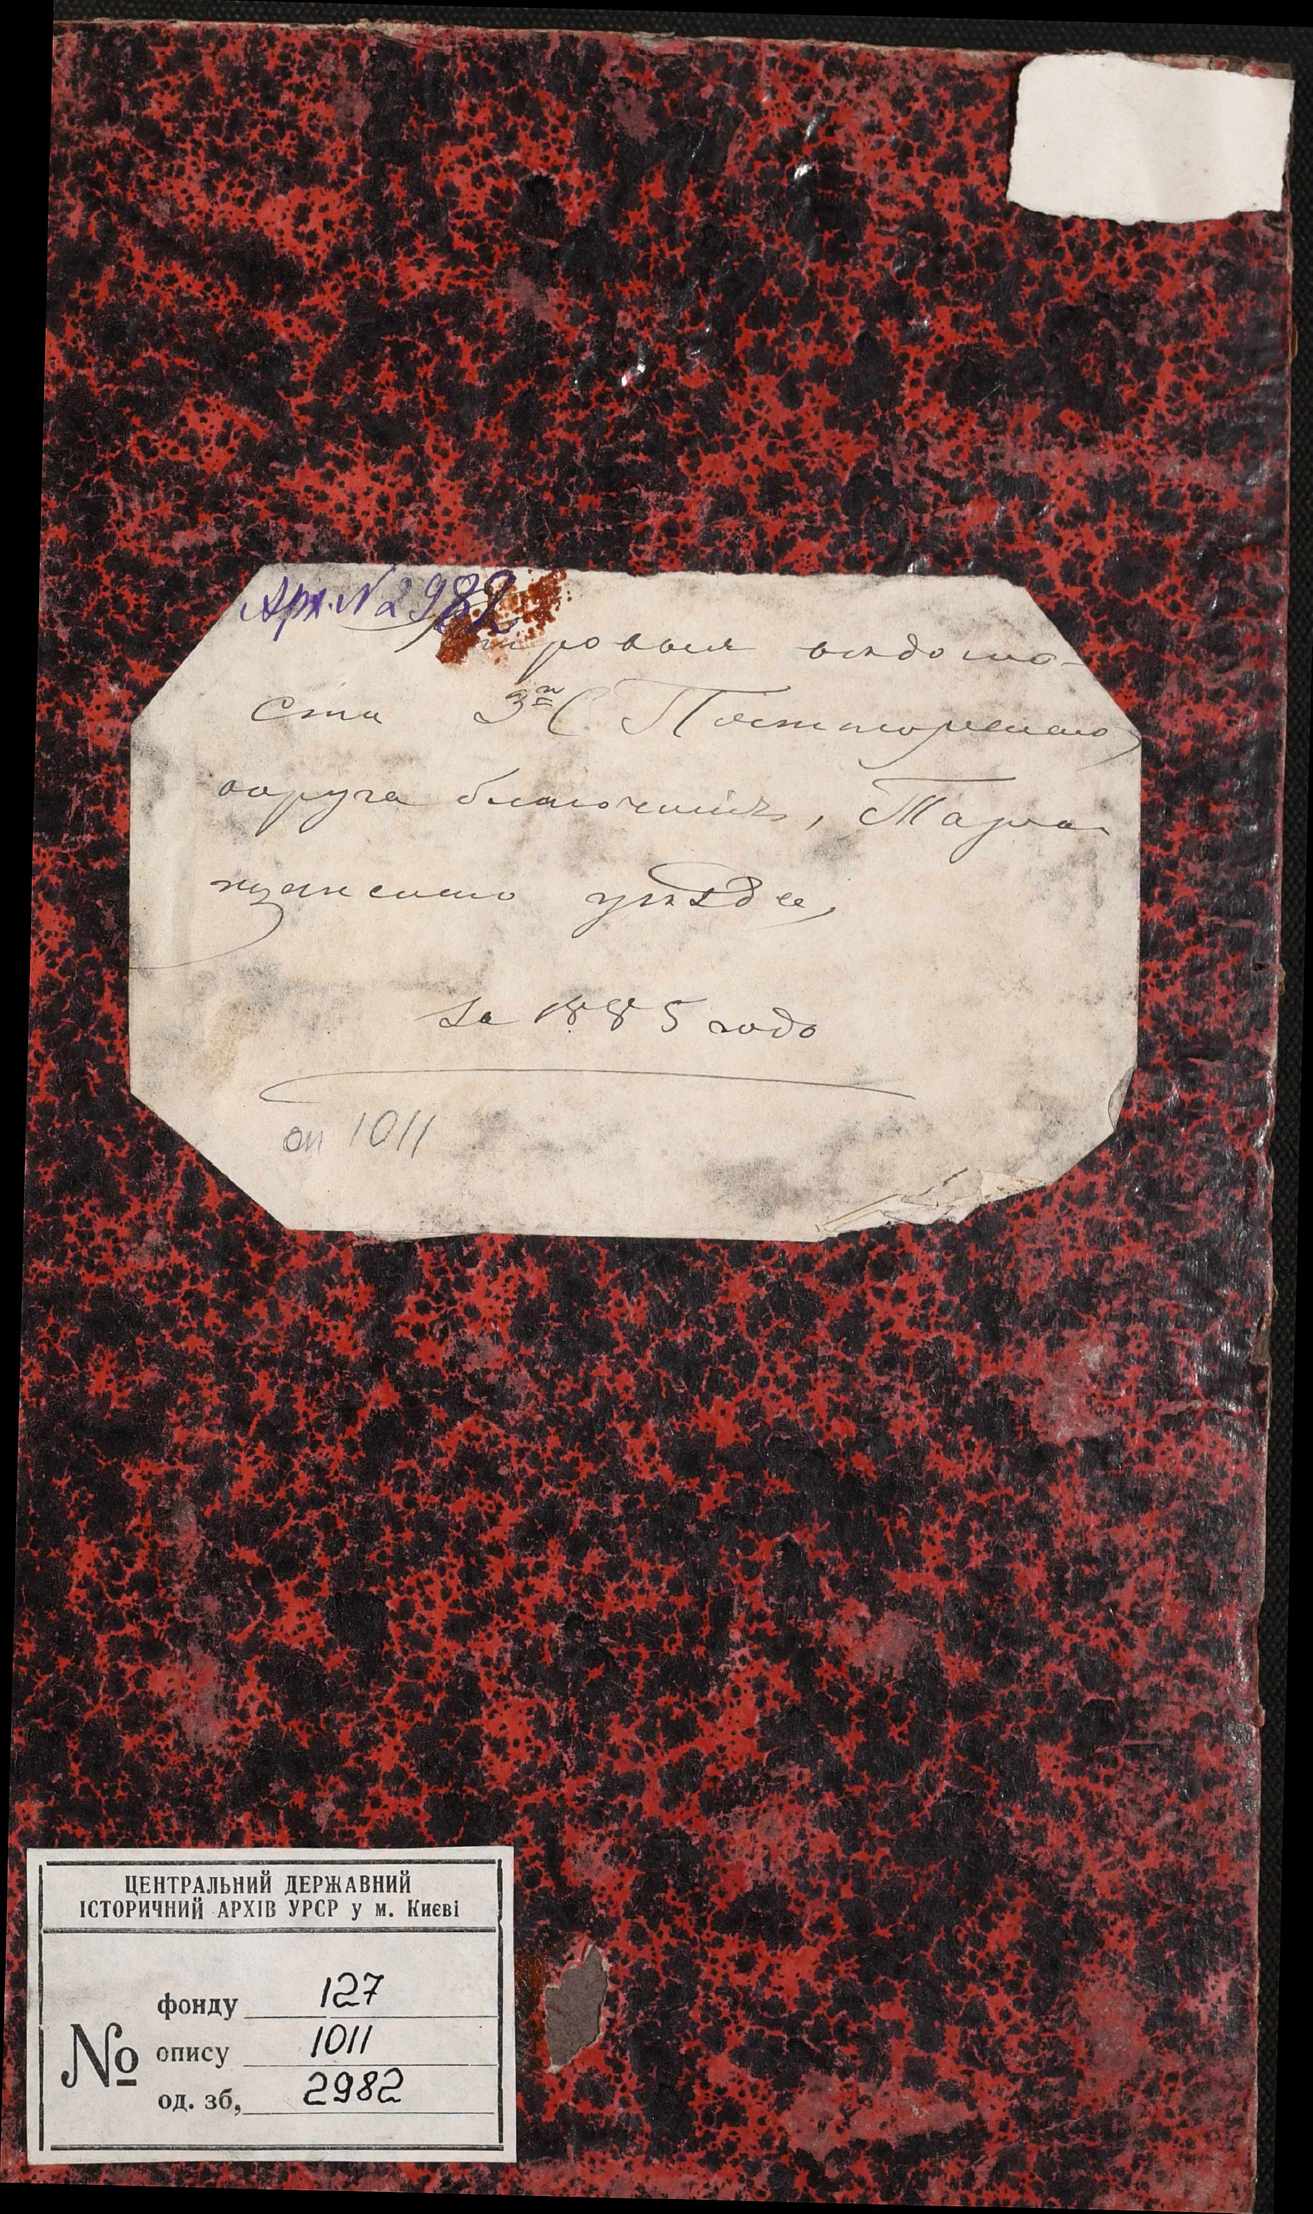 Арх. № 2982
вѣдомо-
сти 3го
округа благочинія, Тара-
щанскаго уѣзда,
за 1885 годъ
оп 1011
ЦЕНТРАЛЬНИЙ ДЕРЖАВНИЙ
ІСТОРИЧНИЙ АРХІВ УРСР у м. Києві
№
фонду 127
опису 1011
од. зб, 2982